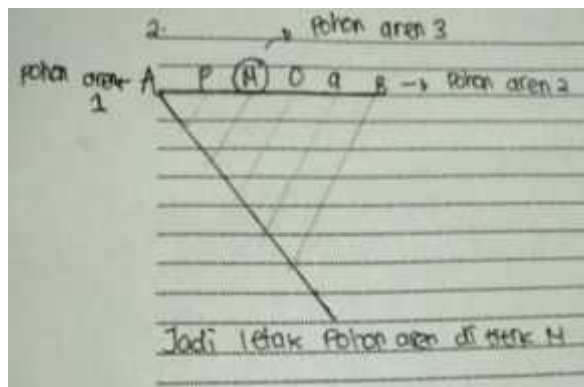 2.
Pohon aren 3
Pohon aren A P M O q B → Pohon aren 2
1
Jadi letak Pohon aren di titik M